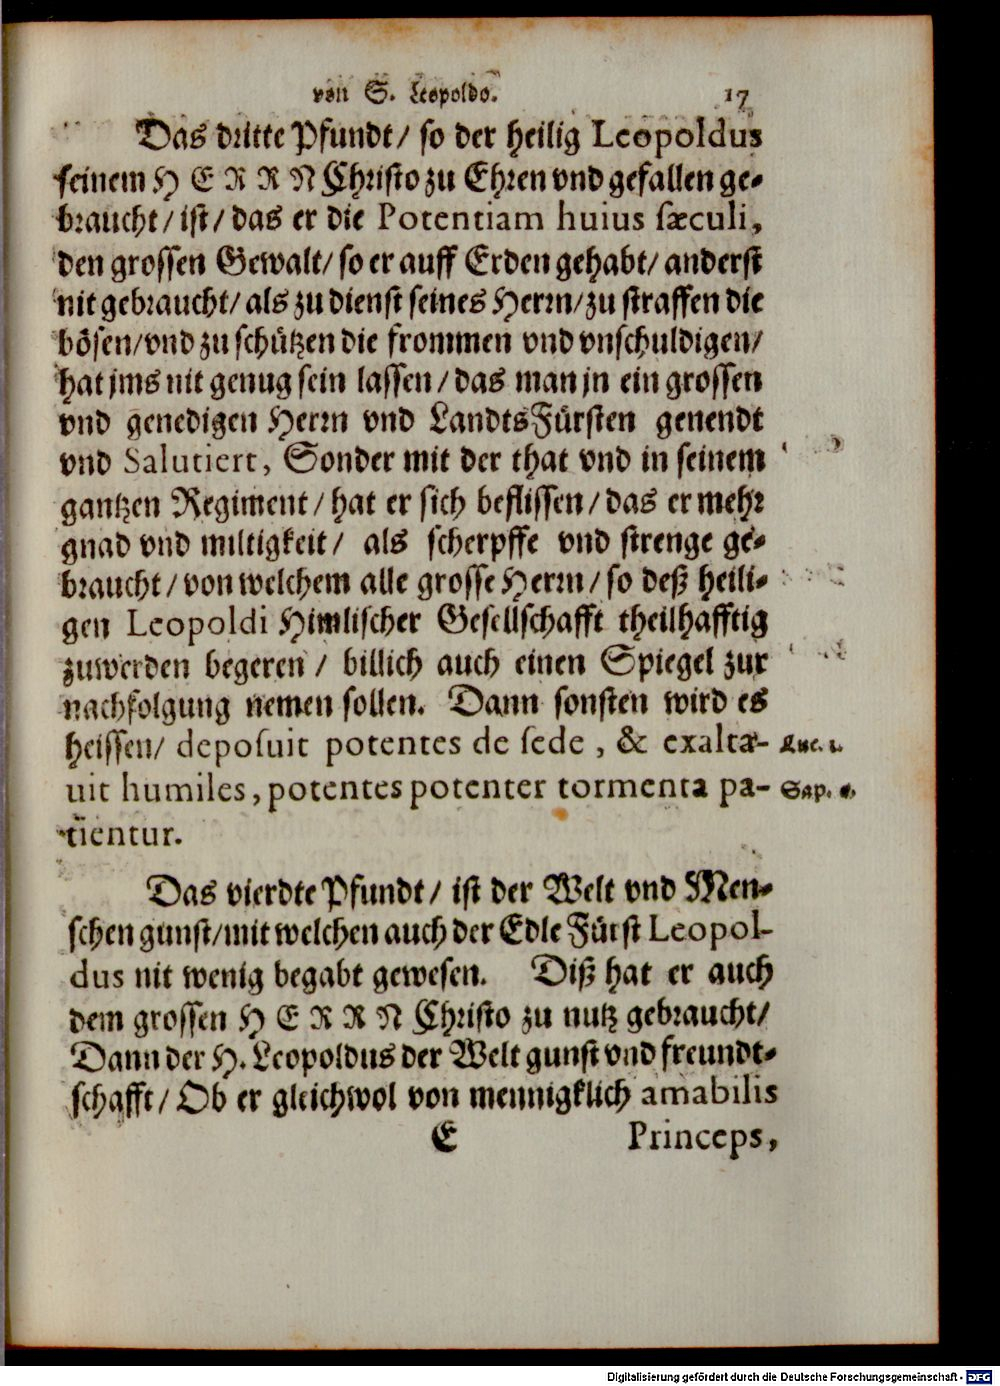 von S. Leopoldo. 17
Das dritte Pfundt / so der heilig Leopoldus
seinem HERRN Christo zu Ehren vnd gefallen ge-
braucht / ist / das er die Potentiam huius sæculi,
den grossen Gewalt / so er auff Erden gehabt / anderst
nit gebraucht / als zu dienst seines Herrn / zu straffen die
bösen / vnd zu schützen die frommen vnd vnschuldigen /
hat jms nit genug sein lassen / das man jn ein grossen
vnd genedigen Herrn vnd LandtsFürsten genendt
vnd Salutiert, Sonder mit der that vnd in seinem
gantzen Regiment / hat er sich beflissen / das er mehr
gnad vnd miltigkeit / als scherpffe vnd strenge ge-
braucht / von welchem alle grosse Herrn / so deß heili-
gen Leopoldi Himlischer Gesellschafft theilhafftig
zuwerden begeren / billich auch einen Spiegel zur
nachfolgung nemen sollen. Dann sonsten wird es
heissen / deposuit potentes de sede, & exalta- Luc. 1.
uit humiles, potentes potenter tormenta pa- Sap. 6.
tientur.
Das vierdte Pfundt / ist der Welt vnd Men-
schen gunst / mit welchen auch der Edle Fürst Leopol-
dus nit wenig begabt gewesen. Diß hat er auch
dem grossen HERRN Christo zu nutz gebraucht /
Dann der H. Leopoldus der Welt gunst vnd freundt-
schafft / Ob er gleichwol von mennigklich amabilis
E Princeps,
Digitalisierung gefördert durch die Deutsche Forschungsgemeinschaft - DFG